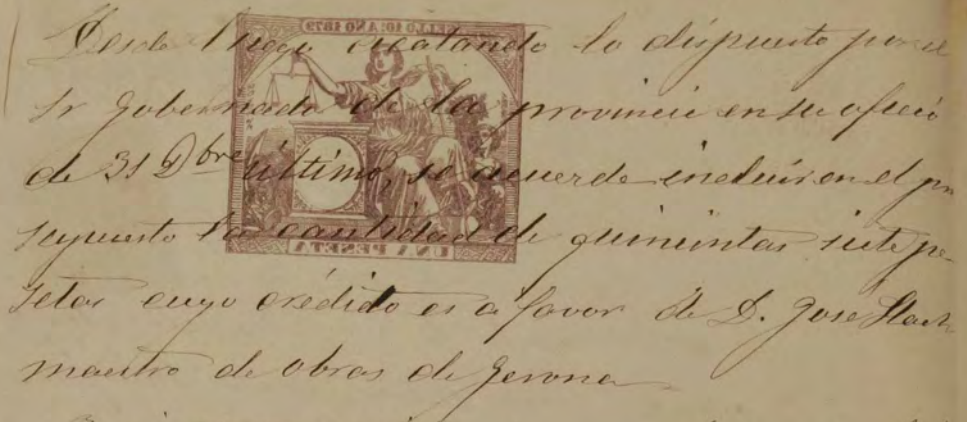 SELLO 10º AÑO 1879
Desde luego acatando lo dispuesto por el
Sr Gobernador de la provincia en su oficio
de 31 Dbre último, se acuerda incluir en el pre
supuesto la cantidad de quinientas siete pe-
setas cuyo crédito es a favor de D. Jose
maestro de obras de Gerona
UNA PESETA